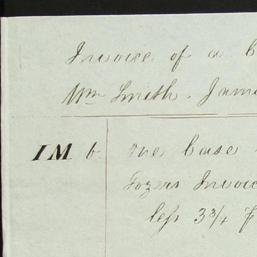 Invoice of a
Wm Smith. Jam
IM 6 One Case
Invoice
less 3 3/4